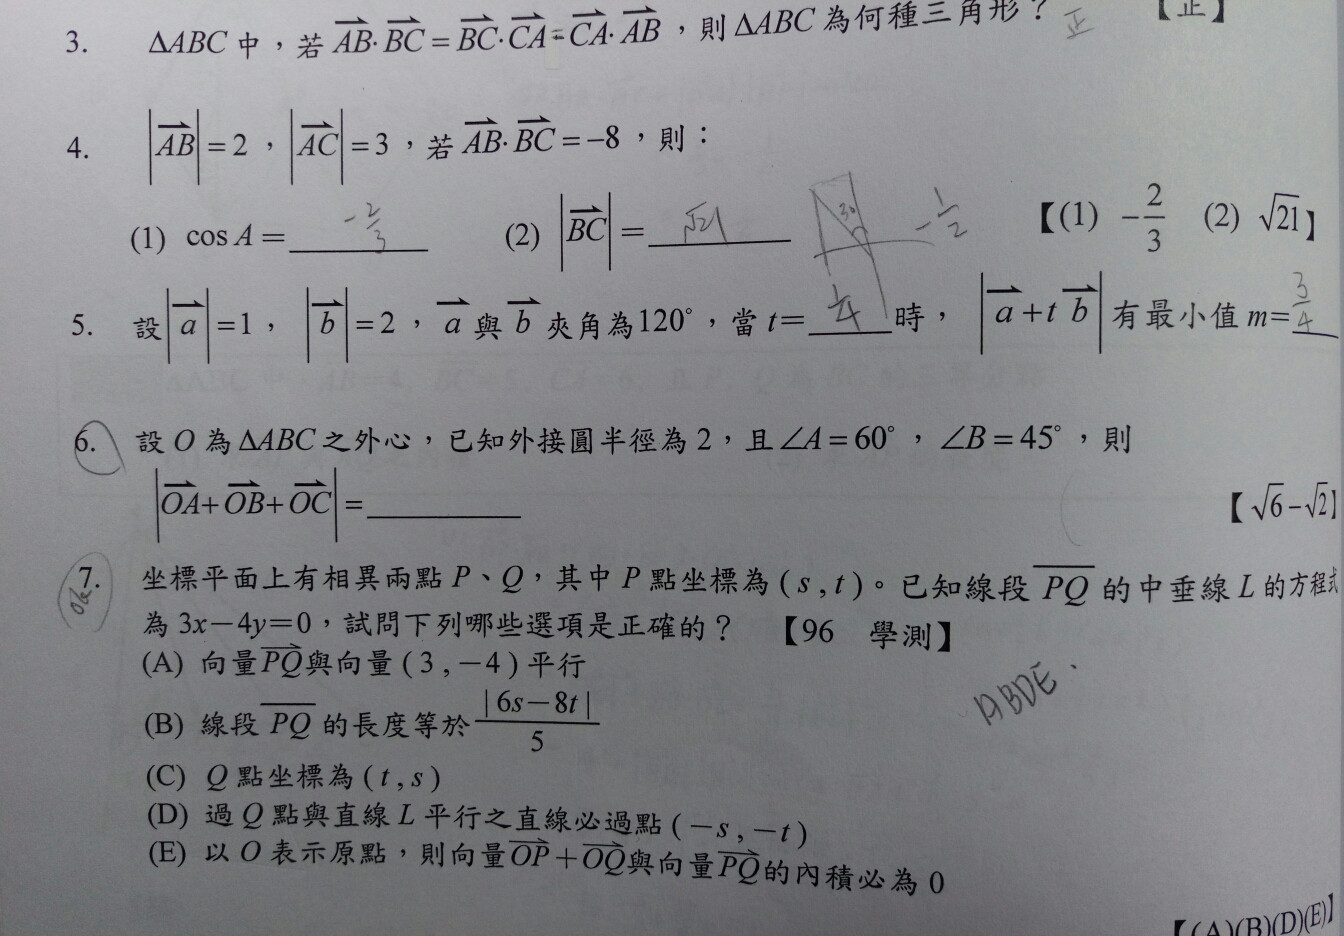 3. ΔABC 中，若 AB·BC = BC·CA = CA·AB，則 ΔABC 為何種三角形？ 正 【正】
4. |AB| = 2，|AC| = 3，若 AB·BC = −8，則：
(1) cos A = -2/3 (2) |BC| = √21 30 -1/2 【(1) −2/3 (2) √21】
5. 設 |a| = 1，|b| = 2，a 與 b 夾角為120°，當 t= 1/4 時，|a + t b| 有最小值 m= 3/4
6. 設 O 為 ΔABC 之外心，已知外接圓半徑為 2，且 ∠A = 60°，∠B = 45°，則
|OA + OB + OC| = 【√6 − √2】
7. 坐標平面上有相異兩點 P、Q，其中 P 點坐標為 (s , t)。已知線段 PQ 的中垂線 L 的方程式
為 3x－4y＝0，試問下列哪些選項是正確的？ 【96 學測】
(A) 向量PQ與向量 (3 , −4) 平行
(B) 線段 PQ 的長度等於 |6s－8t|/5
ABDE.
(C) Q 點坐標為 (t , s)
(D) 過 Q 點與直線 L 平行之直線必過點 (−s , −t)
(E) 以 O 表示原點，則向量OP＋OQ與向量PQ的內積必為 0
【(A)(B)(D)(E)】